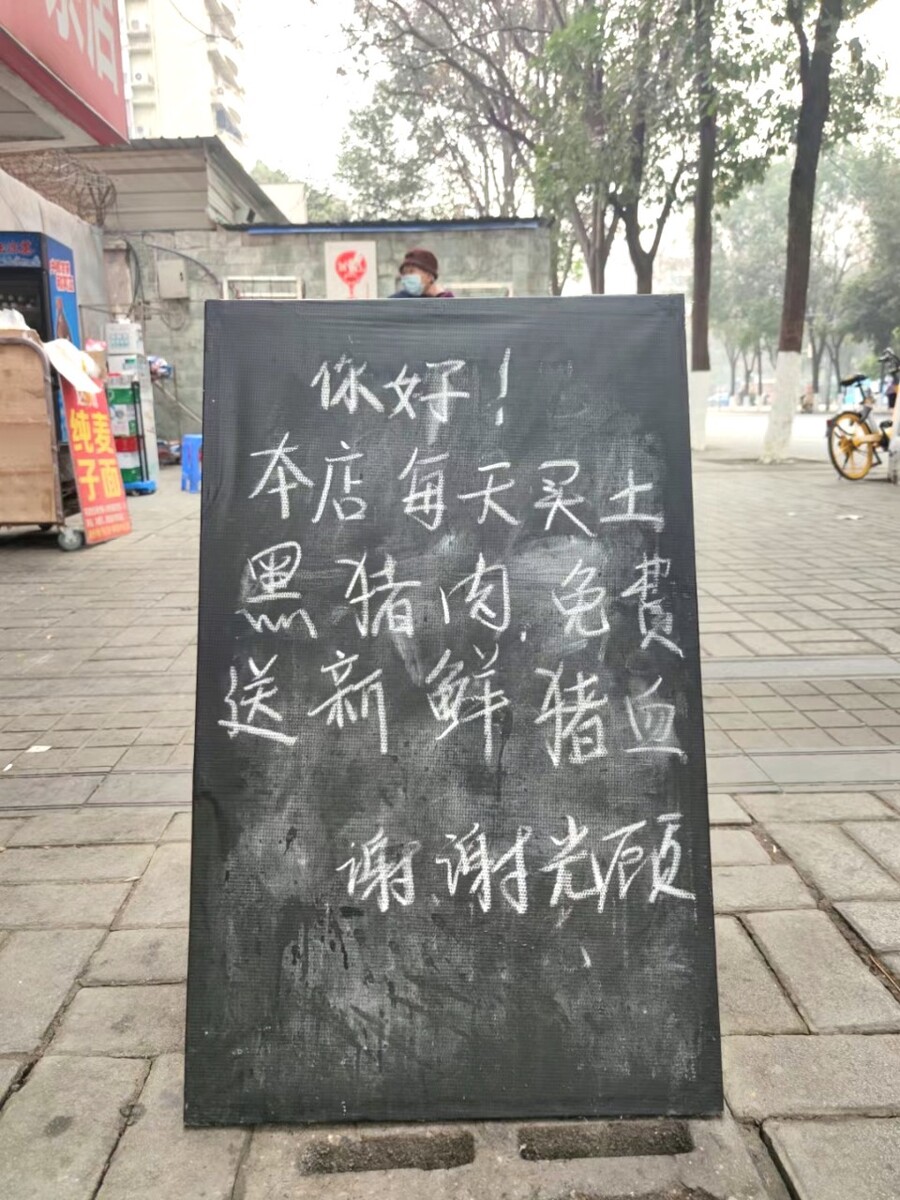 你好！
本店每天买土
黑猪肉,免費
送新鲜猪血
谢谢光顾
纯麦
子面